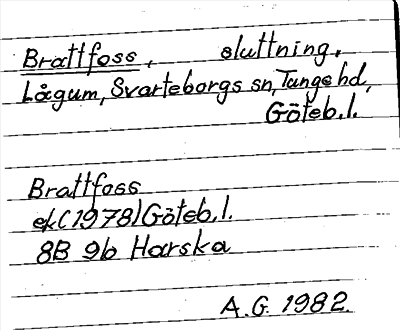 Brattfoss, sluttning.
Lågum, Svarteborgs sn, Tunge hd,
Göteb.l.
Brattfoss
ek (1978) Göteb.l.
8B 9b Harska
A.G. 1982.